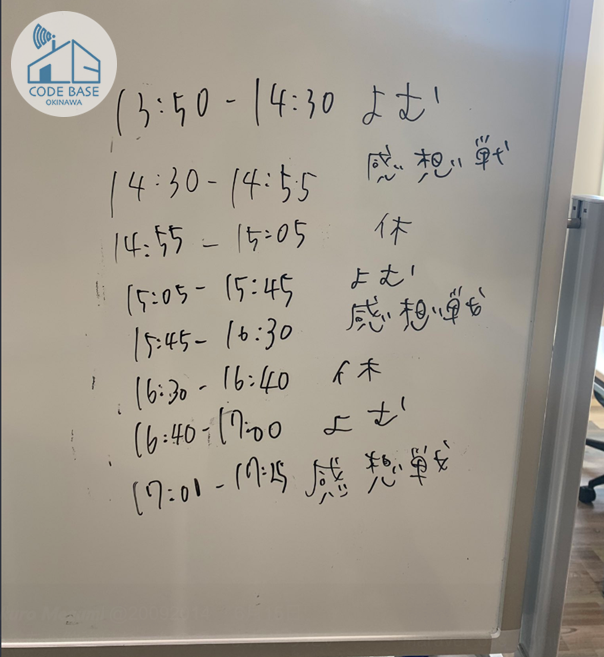 CODE BASE
OKINAWA
13:50 - 14:30 よむ
14:30 - 14:55 感想戦
14:55 - 15:05 休
15:05 - 15:45 よむ
15:45 - 16:30 感想戦
16:30 - 16:40 休
16:40 - 17:00 よむ
17:01 - 17:25 感想戦